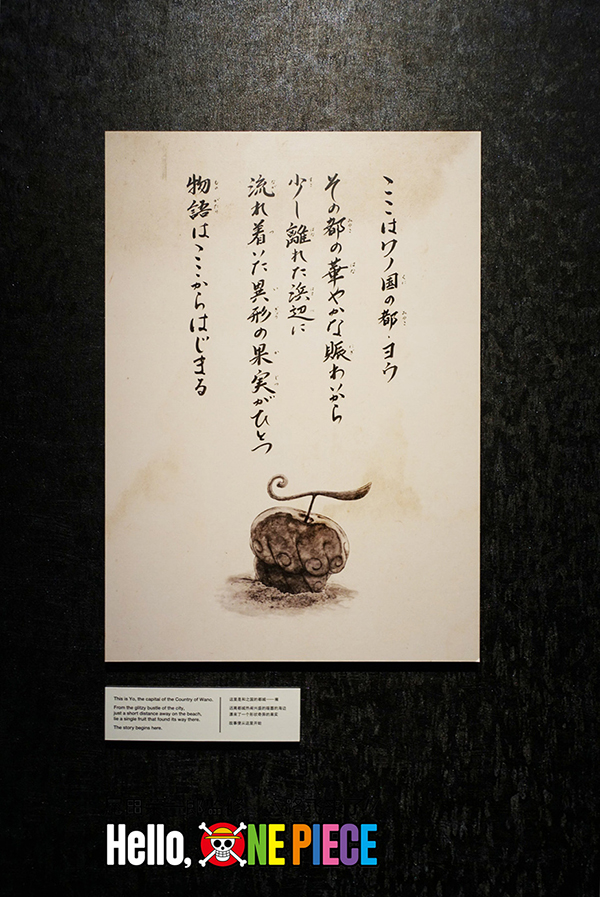 ここはワノ国の都・ヨウ
その都の華やかな賑わいから
少し離れた浜辺に
流れ着いた異形の果実がひとつ
物語はここからはじまる
This is Yo, the capital of the Country of Wano.
From the glitzy bustle of the city,
just a short distance away on the beach,
lie a single fruit that found its way there.
The story begins here.
这里是和之国的都城——
远离都城热闹兴盛的喧嚣的海边
漂来了一个形状奇异的果实
故事便从这里开始
Hello, ONE PIECE